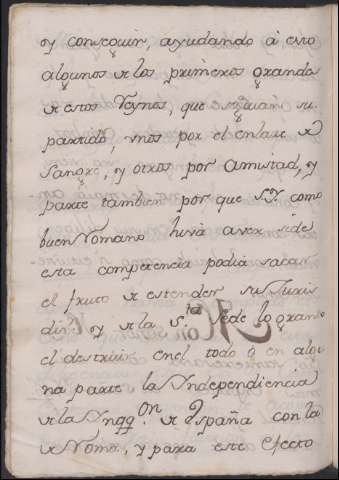 y conseguir, ayudando à esto
algunos de los primeros grandes
de estos Reynos, que seguian su
partido, unos por el enlace de
Sangre, y otros por amistad, y
parte tambien por que S.ry. como
buen Romano havia aver si de
esta competencia podia sacar
el fruto de estender su Juris
dir.n y de la S.ta Sede logrando
el destruir en el todo ô en algu
na parte la Yndependiencia
de la Ynqq.on de España con la
de Roma, y para este efecto